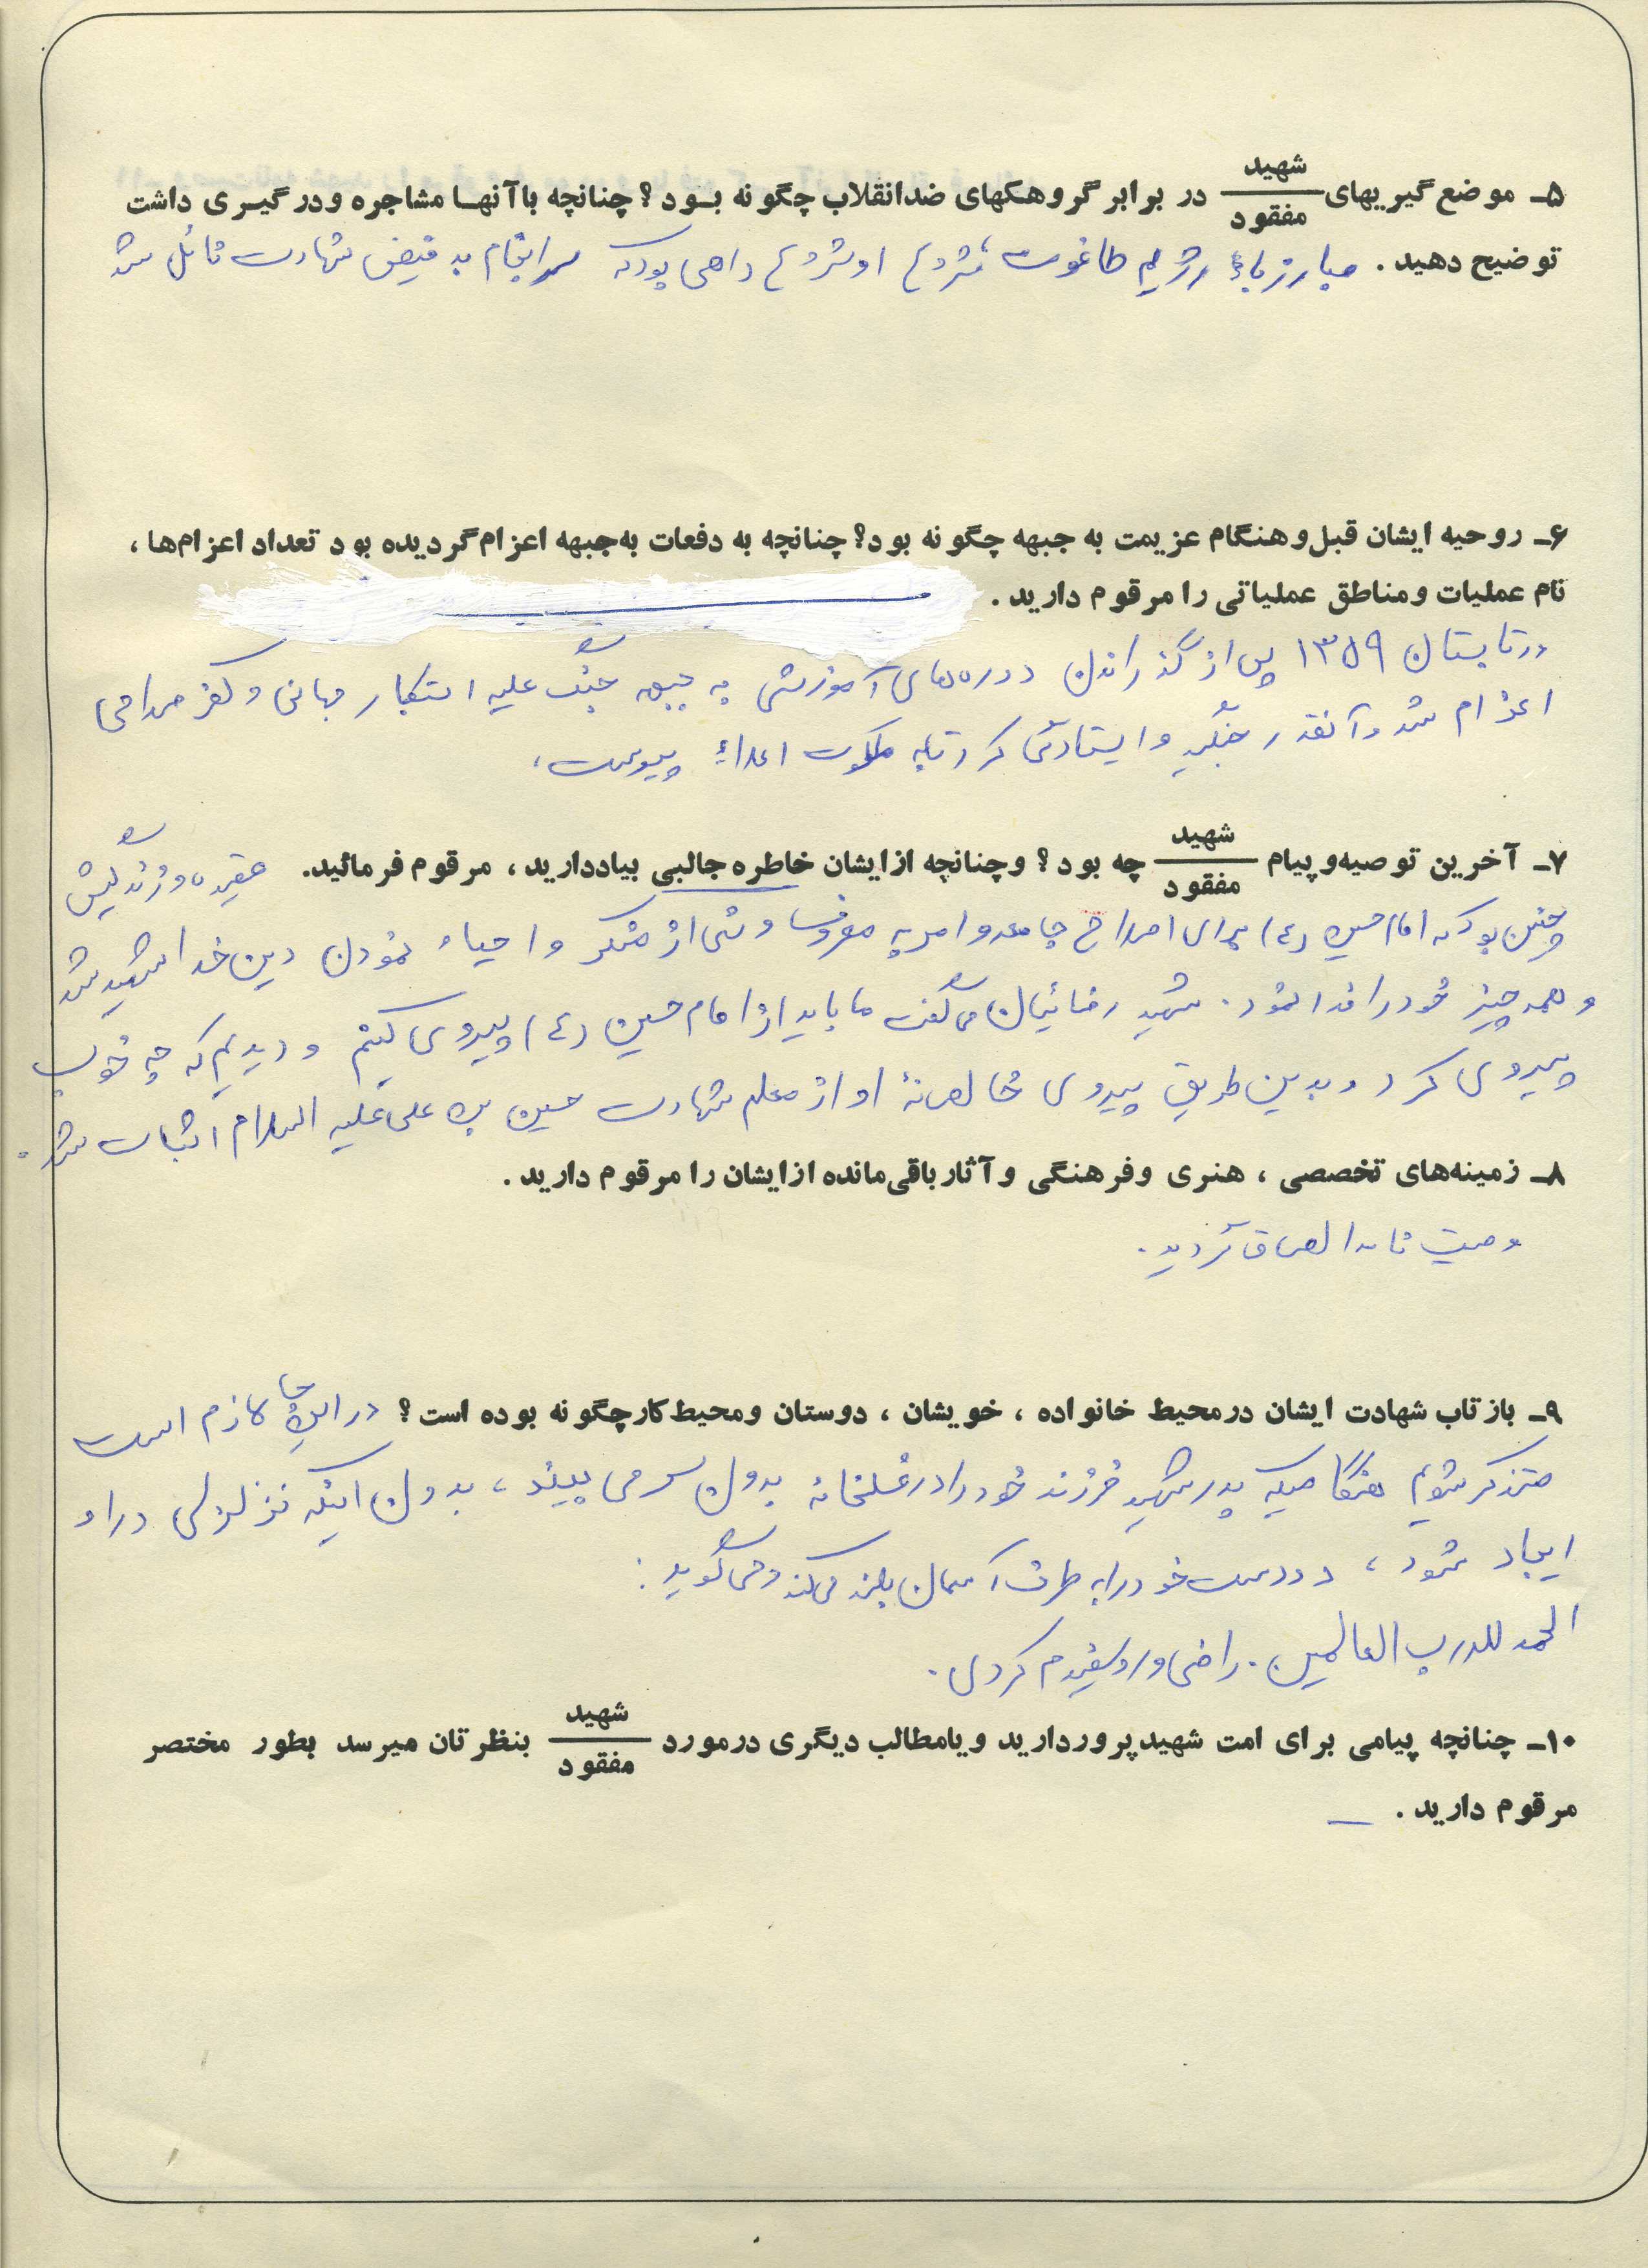 ۵ـ موضع گیریهای شهید/مفقود در برابر گروهکهای ضدانقلاب چگونه بود؟ چنانچه باآنها مشاجره ودرگیری داشت
توضیح دهید. مبارزه با رژیم طاغوت، شروع راهی بود که سرانجام به فیض شهادت نائل شد
۶ـ روحیه ایشان قبل وهنگام عزیمت به جبهه چگونه بود؟ چنانچه به دفعات به جبهه اعزام گردیده بود تعداد اعزام‌ها،
نام عملیات ومناطق عملیاتی را مرقوم دارید.
در تابستان ۱۳۵۹ پس از گذراندن دوره‌های آموزشی به جبهه جنگ علیه استکبار جهانی و کفر صدامی
اعزام شد و آنقدر جنگید و ایستادگی کرد تا به ملکوت اعلاء پیوست،
۷ـ آخرین توصیه‌وپیام شهید/مفقود چه بود؟ وچنانچه ازایشان خاطره جالبی بیاددارید، مرقوم فرمائید. عقیده و زندگیش
چنین بود که امام حسین (ع) برای اصلاح جامعه و امر به معروف و نهی از منکر و احیاء نمودن دین خدا شهید شد
و همه چیز خود را فدا نمود. شهید رضائیان می گفت ما باید از امام حسین (ع) پیروی کنیم و دیدیم که چه خوب
پیروی کرد و بدین طریق پیروی خالصانهٔ او از معلم شهادت حسین بن علی علیه السلام اثبات شد.
۸ـ زمینه‌های تخصصی، هنری وفرهنگی وآثارباقی‌مانده ازایشان را مرقوم دارید.
وصیت نامه الصاق گردید.
۹ـ بازتاب شهادت ایشان درمحیط خانواده، خویشان، دوستان ومحیط کارچگونه بوده است؟ در اینجا لازم است
متذکر شویم هنگامیکه پدر شهید فرزند خود را در غسلخانه بدون سر می بیند، بدون اینکه تزلزلی در او
ایجاد شود، دو دست خود را به طرف آسمان بلند می کند و می گوید:
الحمد لله رب العالمین. راضی و روسفیدم کردی.
۱۰ـ چنانچه پیامی برای امت شهیدپروردارید ویامطالب دیگری درمورد شهید/مفقود بنظرتان میرسد بطور مختصر
مرقوم دارید. ـ